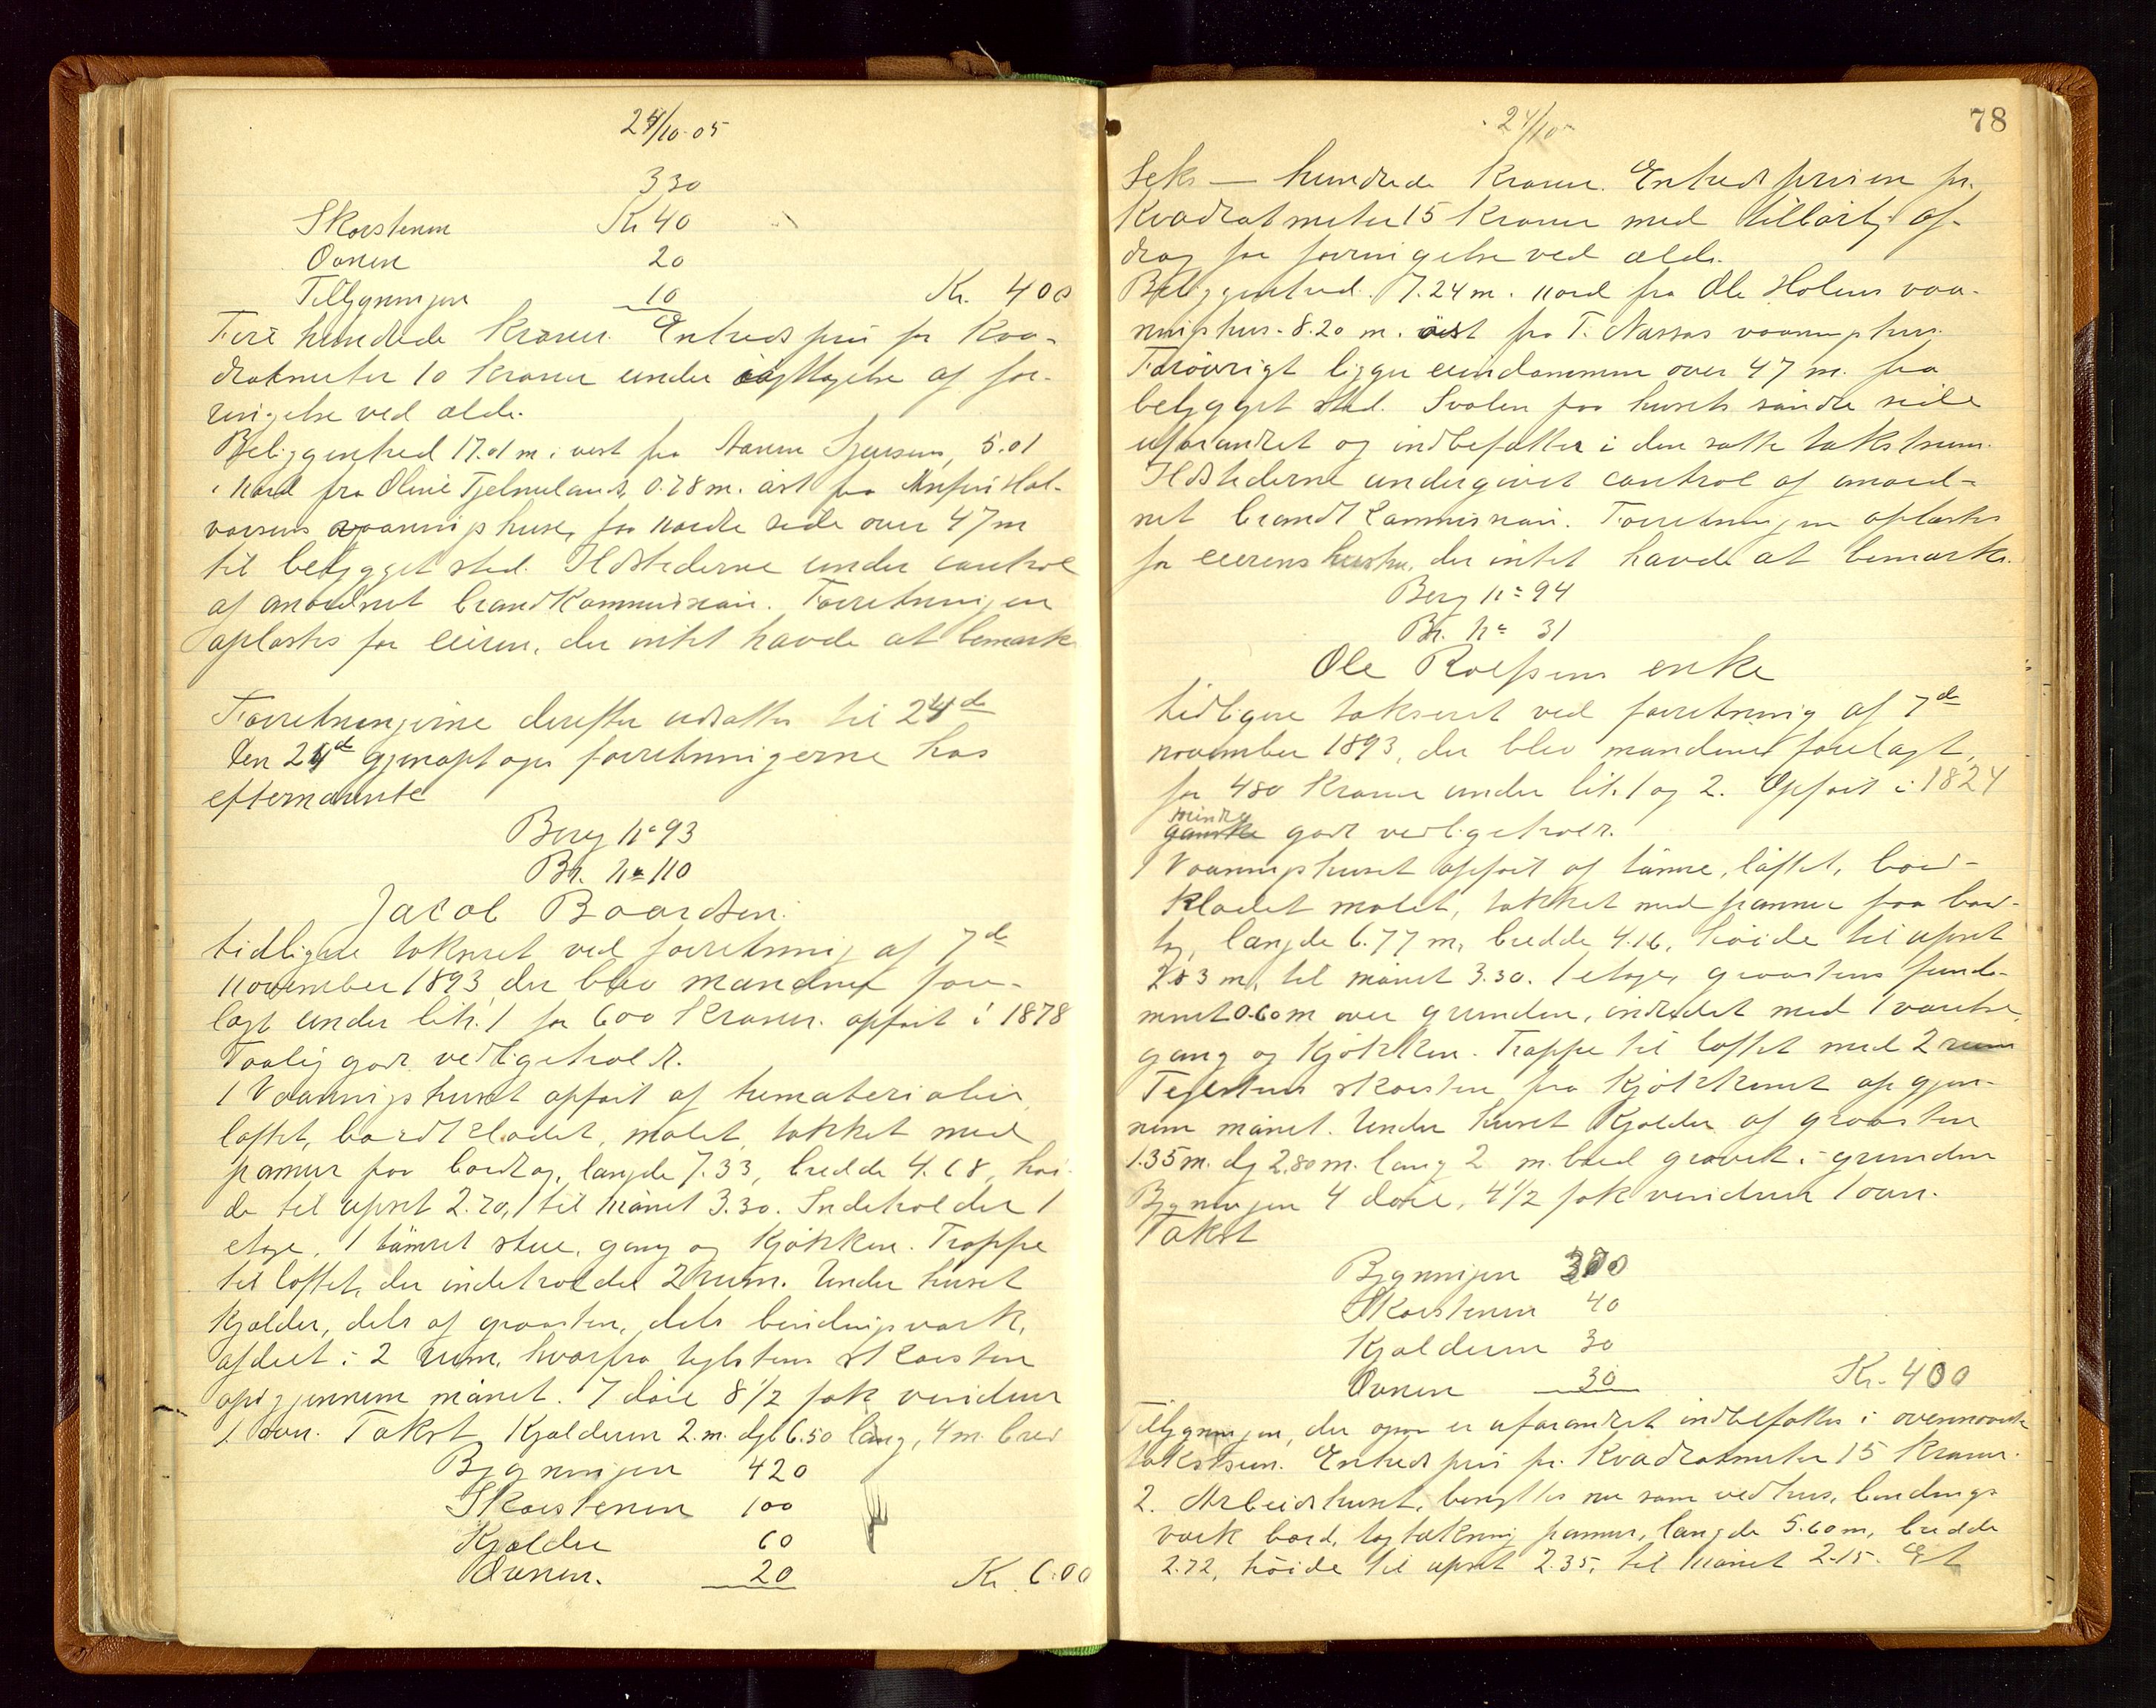 24/10-05
330
Skorstenen Kr 40
Ovnen 20
Tilbygningen 10 Kr. 400
Fire hundrede kroner. Enhedspris pr kva-
dratmeter 10 kroner under iagttagelse af for-
ringelse ved ælde.
Beliggenhed 17.01 m. i vest fra 5.01
i nord fra Oline Tjelmelands, 0.78 m. øst fra Hal-
vorsens vaaningshuse, paa nordre side over 47 m
til bebygget sted. Ildstederne under control
af anordnet brandkommission. Forretningen
oplæstes for eieren, der intet havde at bemærke
Forretningerne derefter udsattes til 24de
Den 24de gjenoptages forretningerne hos
efternævnte
Berg No 93
Br. No 110
Jacob Baardsen.
tidligere takseret ved forretning af 7de
november 1893, der blev manden fore-
lagt under litr. 1 for 600 kroner. opført i 1878
Taalig godt vedligeholdt.
1 Vaaningshuset opført af træmaterialier
loftet, bordklædet, malet, tækket med
panner paa bordtag, længde 7.33, bredde 4.68, høi-
de til opset 2.70, til mønet 3.30. Indeholder 1
etage, 1 tømret stue, gang og kjøkken. Trappe
til loftet, der indeholder 2 rum. Under huset
kjelder, dels af graasten, dels bindingsverk,
afdelt i 2 rum, hvorfra teglstens skorsten
op igjennem mønet. 7 døre 8 1/2 fak vinduer
1 ovn. Takst Kjelderen 2. m. dyb 6.50 lang, 4 m. bred
Bygningen 420
Skorstenen 100
Kjelder 60
Ovnen. 20 Kr. 600
24/10
78
Seks — hundrede kroner. Enhedsprisen pr.
kvadratmeter 15 kroner med tilbørlig af-
drag for forringelse ved ælde.
Beliggenhed. 7.24 m. nord fra Ole Holens vaa-
ningshus. 8.20 m. øst fra T. Næssas vaaningshus.
Forøvrigt ligger eiendommen over 47 m. fra
bebygget sted. Svalen paa husets søndre side
uforandret og indbefattes i den satte takstsum.
Ildstederne undergivet control af anord-
net brandkommission. Forretningen oplæstes
for eierens hustru, der intet havde at bemærke.
Berg No 94
Br. No 31
Ole Rolfsens enke
tidligere takseret ved forretning af 7de
november 1893, der blev manden forelagt
for 480 kroner under lit. 1 og 2. Opført i 1824
mindre
ganske godt vedligeholdt.
1 Vaaningshuset opført af tømmer, loftet, bord-
klædet malet, tækket med panner paa bord-
tag, længde 6.77 m, bredde 4.16, høide til opset
2.83 m, til mønet 3.30. 1 etage, graastens funda-
ment 0.60 m over grunden, indredet med 1 værelse,
gang og kjøkken. Trappe til loftet med 2 rum
Teglstens skorsten fra kjøkkenet op gjen-
nem mønet. Under huset kjelder af graasten
1.35 m. dyb 2,80 m. lang 2 m. bred gravet i grunden
Bygningen 4 døre, 4 1/2 fak vinduer 1 ovn.
Takst
Bygningen 300
Skorstenen 40
Kjelderen 30
Ovnen 30 Kr. 400
Tilbygningen, der er uforandret indbefattes i ovennævnte
takstsum. Enhedspris pr. kvadratmeter 15 kroner.
2. Arbeidshuset, benyttes nu som vedhus, bindings
verk bord, tagtækning panner, længde 5.60 m, bredde
2.72, høide til opset 2.35, til mønet 2.15. Et